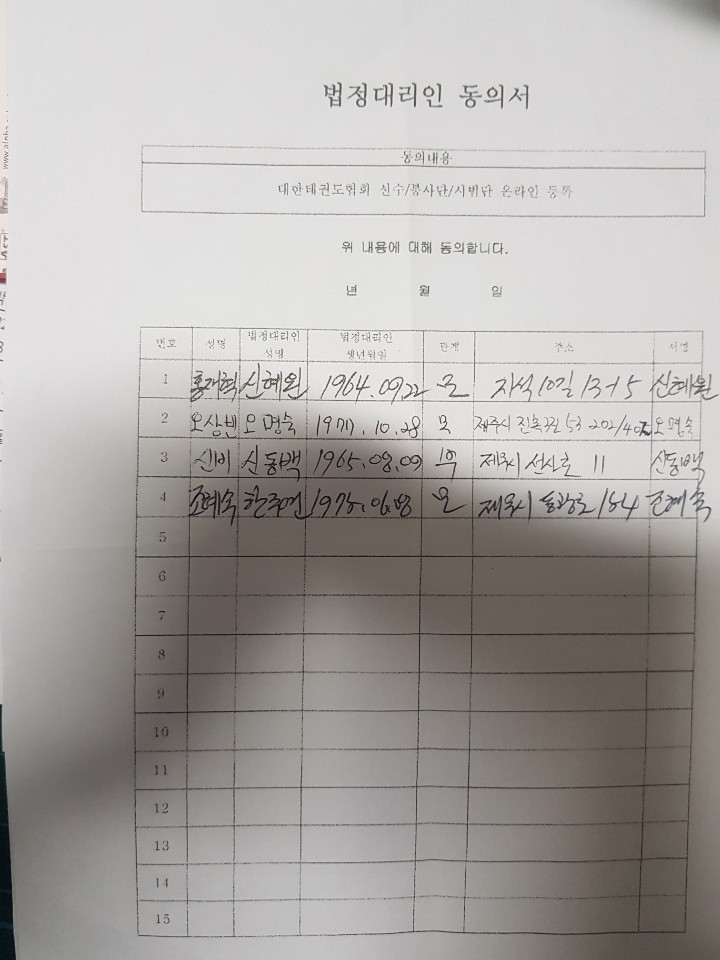 법정대리인 동의서
동의내용
대한태권도협회 선수/봉사단/시범단 온라인 등록
위 내용에 대해 동의합니다.
년 월 일
번호 성명 법정대리인 성명 법정대리인 생년월일 관계 주소 서명
1 홍재혁 신혜원 1964.09.22 모 지석10길 13-15 신혜원
2 오상빈 오명숙 1977.10.28 모 제주시 53 202/402 오명숙
3 신비 신동백 1965.08.09 부 제주시 선사로 11 신동백
4 조혜숙 모 제주시 동광로 184 조혜숙
5
6
7
8
9
10
11
12
13
14
15